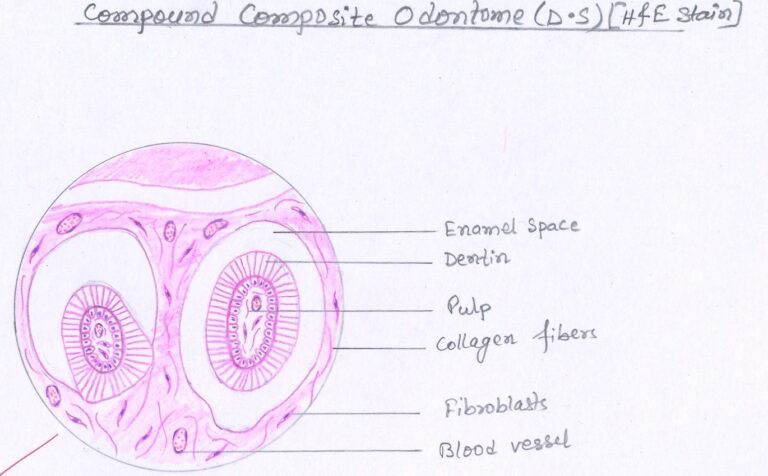 Compound Composite Odontome (D.S) [H&E Stain]
Enamel Space
Dentin
Pulp
Collagen fibers
Fibroblasts
Blood vessel